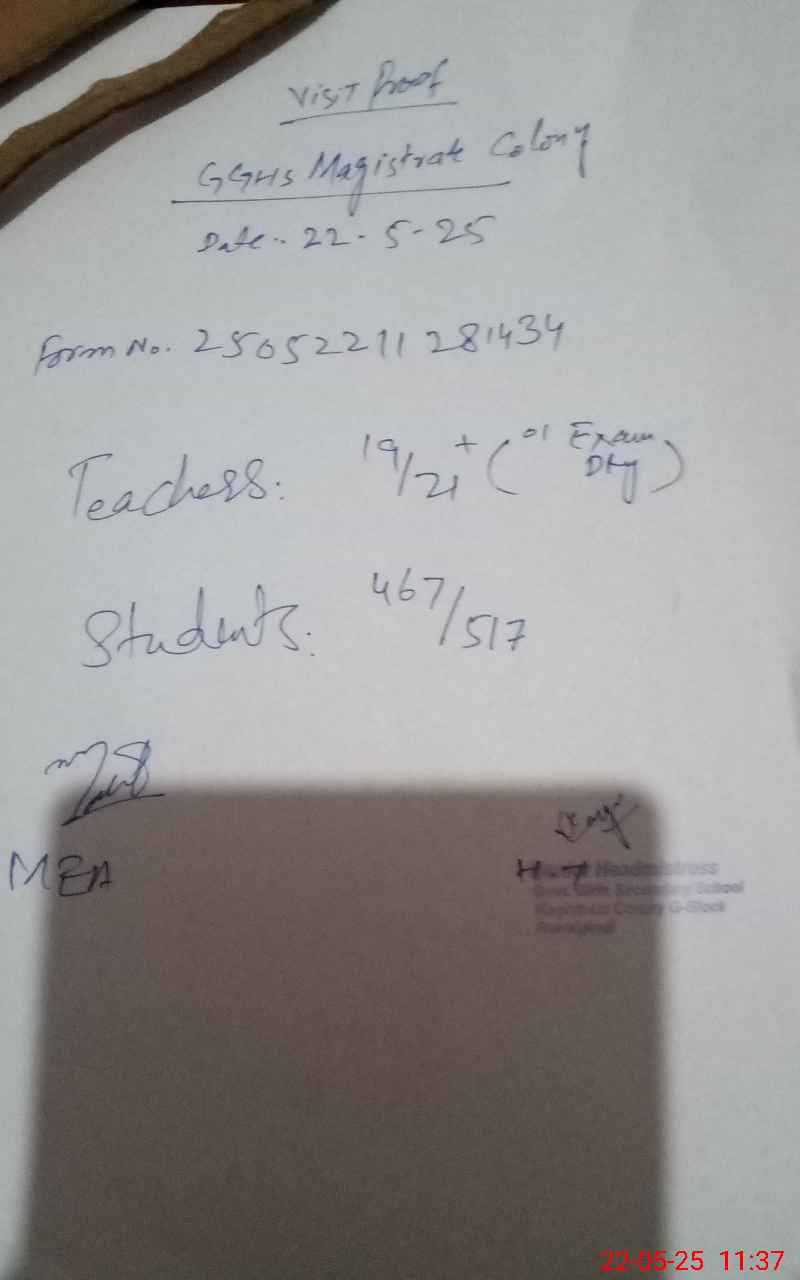 Visit Proof
GGHS Magistrate Colony
Date:- 22-5-25
Form No. 25052211281434
Teachers: 19/21 + (01 Exam Dty)
Students: 467/517
MEA
Headmistress
Govt. Girls Secondary School
Magistrate Colony G-Block
Rawalpindi
22-05-25 11:37